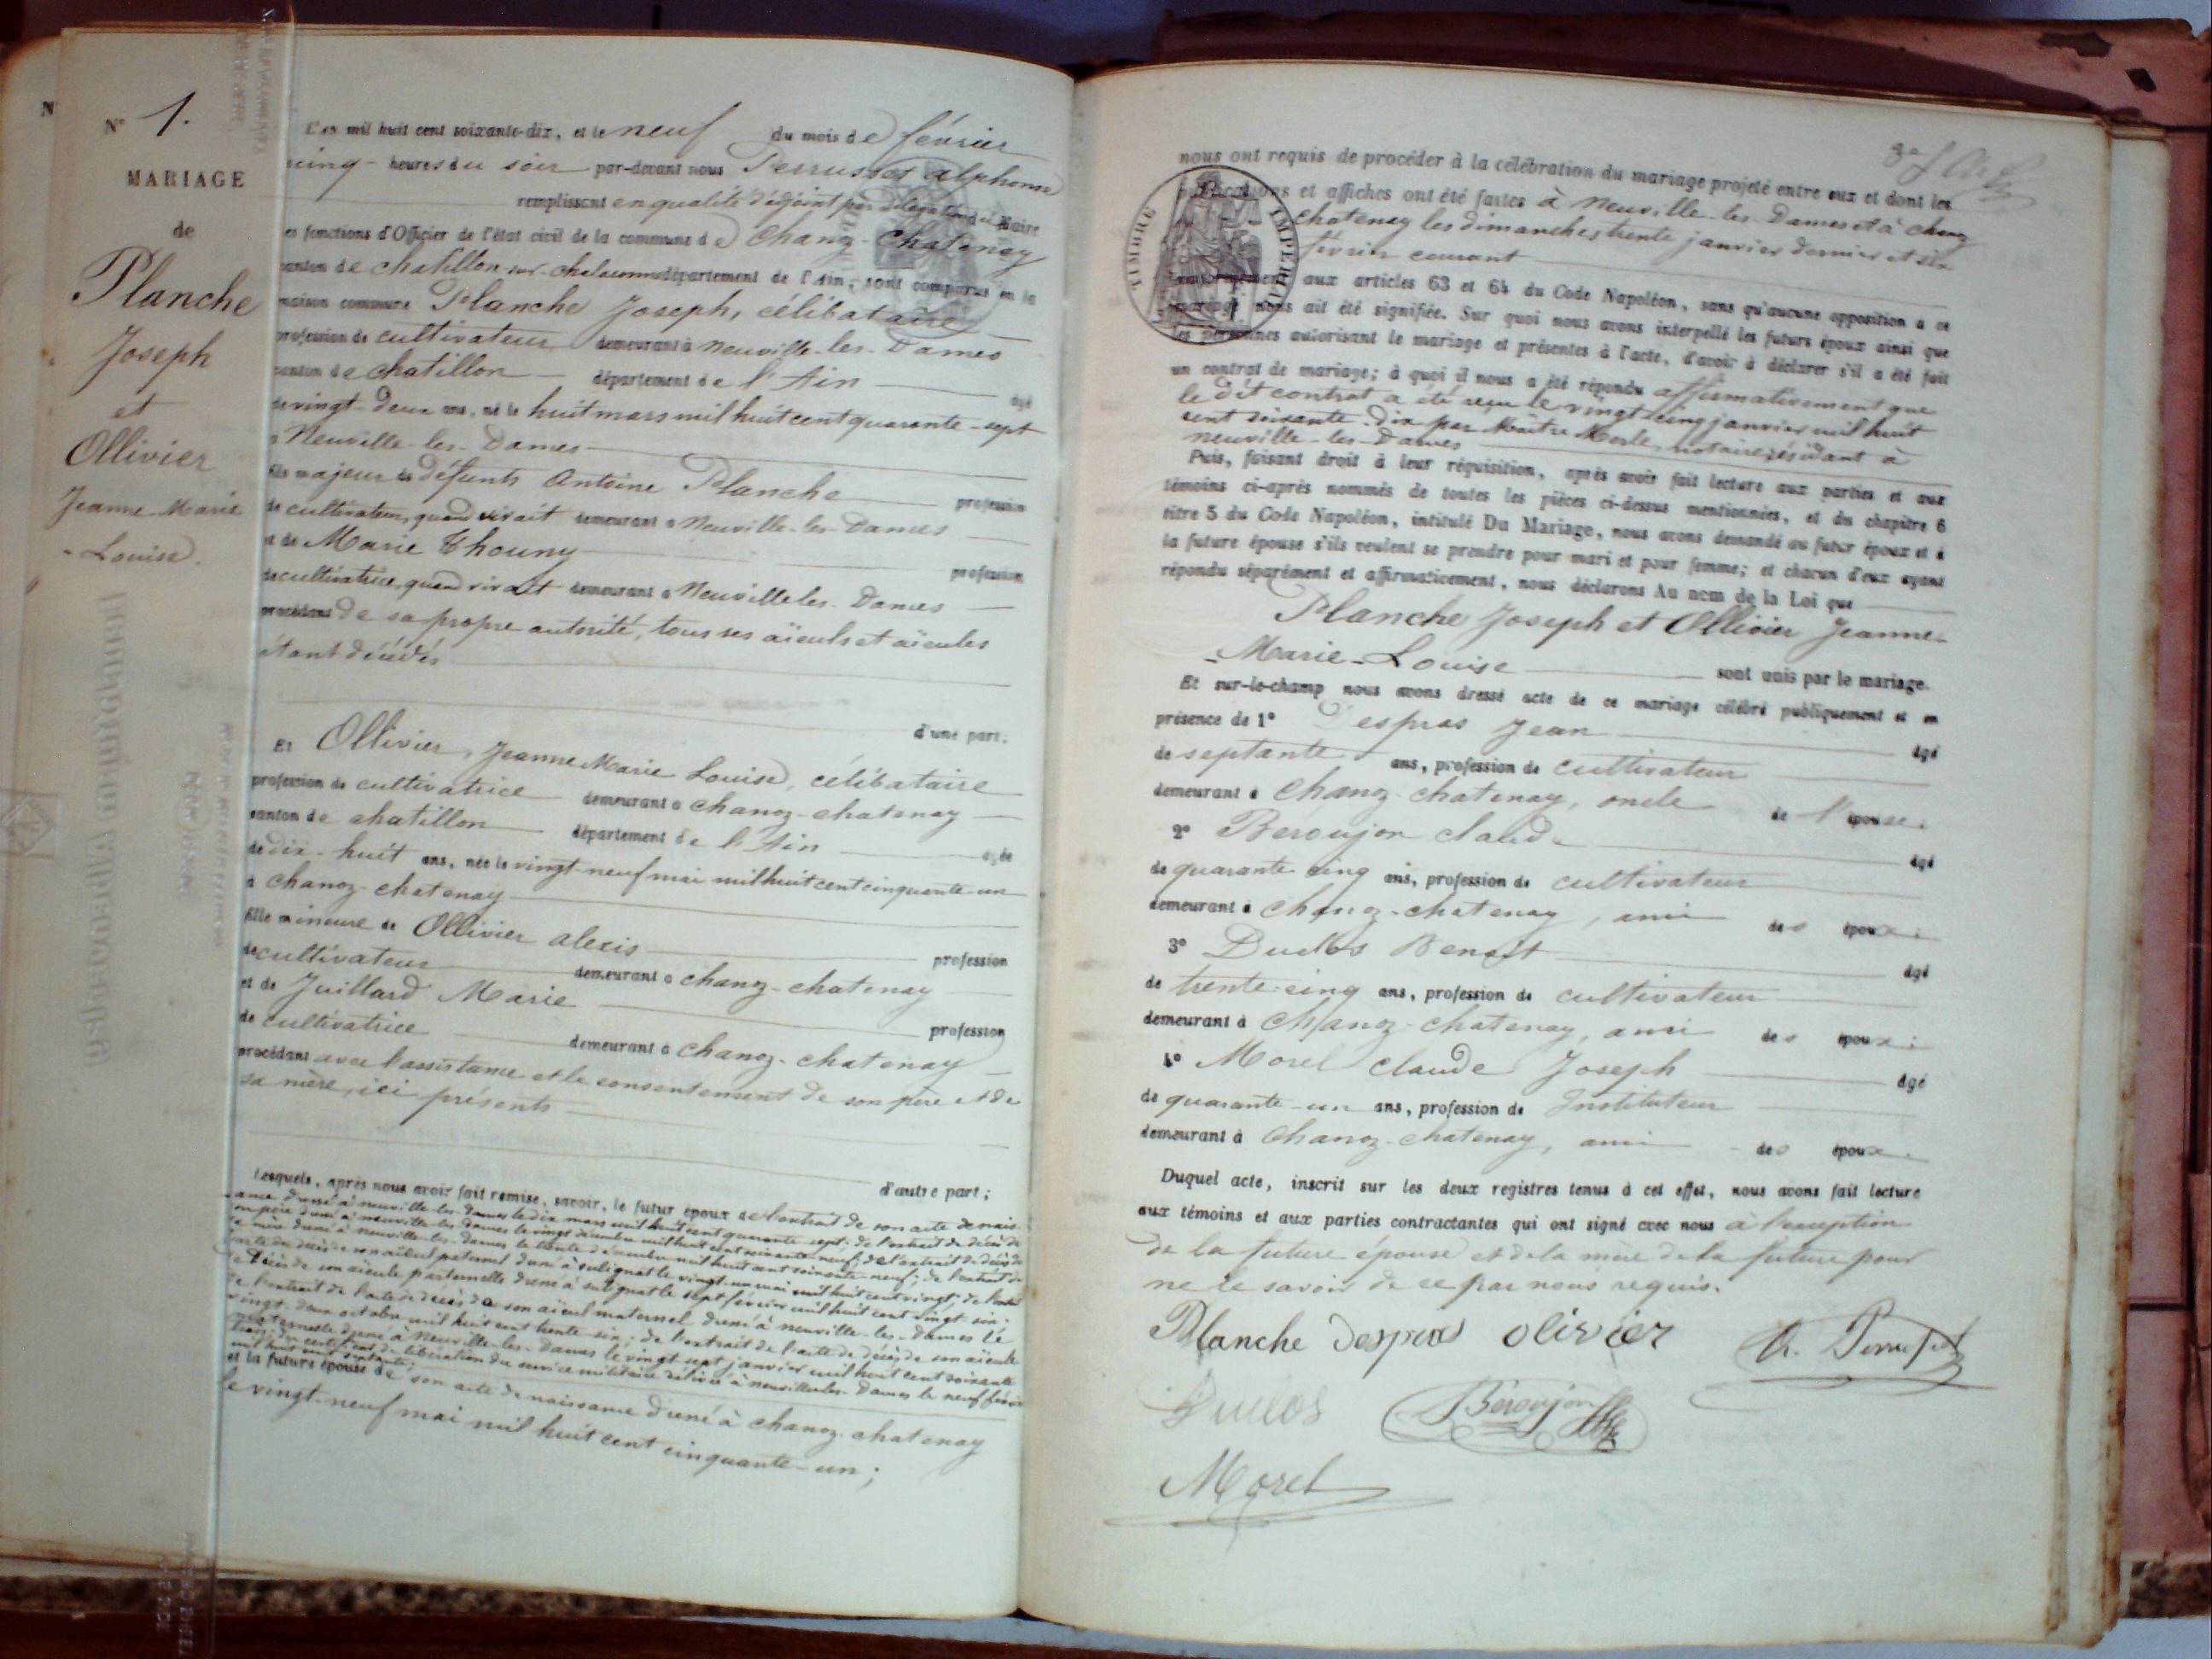 N° 1.
MARIAGE
de
Planche
Joseph
et
Ollivier
Jeanne Marie
- Louise.
L'an mil huit cent soixante-dix, et le neuf du mois de février
cinq heures du soir par-devant nous Perrusset alphonse
remplissant en qualité d'adjoint par délégation du Maire
les fonctions d'Officier de l'état civil de la commune de Chanoz-Chatenay
canton de chatillon-sur-chalaronne département de l'Ain, sont comparus en la
maison commune Planche Joseph, célibataire
profession de cultivateur demeurant à Neuville-les-Dames
canton de chatillon département de l'Ain âgé
de vingt-deux ans, né le huit mars mil huit cent quarante-sept
à Neuville-les-Dames
fils majeur de défunts Antoine Planche profession
de cultivateur, quand vivait demeurant à Neuville-les-Dames
et de Marie Thouny profession
de cultivatrice, quand vivait demeurant à Neuville les-Dames
procédant de sa propre autorité, tous ses aïeuls et aïeules
étant décédés
d'une part;
Et Ollivier, Jeanne Marie Louise, célibataire
profession de cultivatrice demeurant à chanoz-chatenay
canton de chatillon département de l'Ain âgée
de dix-huit ans, née le vingt-neuf mai mil huit cent cinquante-un
à chanoz-chatenay
fille mineure de Ollivier alexis profession
de cultivateur demeurant à chanoz-chatenay
et de Juillard Marie profession
de cultivatrice demeurant à chanoz-chatenay
procédant avec l'assistance et le consentement de son père et de
sa mère, ici présents
d'autre part;
Lesquels, après nous avoir fait remise, savoir, le futur époux de l'extrait de son acte de nais-
sance dressé à neuville-les-Dames le dix mars mil huit cent quarante sept; de l'extrait de décès de
son père dressé à neuville-les-Dames le vingt décembre mil huit cent soixante-neuf; de l'extrait de décès de
sa mère dressé à neuville-les-Dames le trente décembre mil huit cent soixante-neuf; de l'extrait de
l'acte de décès de son aïeul paternel dressé à sulignat le vingt-un mai mil huit cent vingt; de l'extrait
de décès de son aïeule paternelle dressé à sulignat le sept février mil huit cent vingt six;
de l'extrait de l'acte de décès de son aïeul maternel dressé à neuville-les-Dames le
vingt-deux octobre mil huit cent trente six; de l'extrait de l'acte de décès de son aïeule
maternelle dressé à Neuville-les-Dames le vingt-sept janvier mil huit cent soixante
trois; du certificat de libération du service militaire délivré à neuville-les-Dames le neuf février
mil huit cent septante;
et la future épouse de son acte de naissance dressé à chanoz-chatenay
le vingt-neuf mai mil huit cent cinquante-un;
nous ont requis de procéder à la célébration du mariage projeté entre eux et dont les
publications et affiches ont été faites à Neuville-les-Dames et à chanoz
chatenay les dimanches trente janvier dernier et six
février courant
TIMBRE IMPERIAL
conformément aux articles 63 et 64 du Code Napoléon, sans qu'aucune opposition à ce
mariage nous ait été signifiée. Sur quoi nous avons interpellé les futurs époux ainsi que
les personnes autorisant le mariage et présentes à l'acte, d'avoir à déclarer s'il a été fait
un contrat de mariage; à quoi il nous a été répondu affirmativement que
le dit contrat a été reçu le vingt-cinq janvier mil huit
cent soixante-dix par Maître Merle, notaire résidant à
neuville-les-Dames
Puis, faisant droit à leur réquisition, après avoir fait lecture aux parties et aux
témoins ci-après nommés de toutes les pièces ci-dessus mentionnées, et du chapitre 6
titre 5 du Code Napoléon, intitulé Du Mariage, nous avons demandé au futur époux et à
la future épouse s'ils veulent se prendre pour mari et pour femme; et chacun d'eux ayant
répondu séparément et affirmativement, nous déclarons Au nom de la Loi que
Planche Joseph et Ollivier Jeanne-
-Marie-Louise sont unis par le mariage.
Et sur-le-champ nous avons dressé acte de ce mariage célébré publiquement et en
présence de 1° Despras Jean âgé
de septante ans, profession de cultivateur
demeurant à Chanoz-chatenay, oncle de l'épouse;
2° Béroujon claude âgé
de quarante cinq ans, profession de cultivateur
demeurant à Chanoz-chatenay, ami des époux;
3° Duclos Benoit âgé
de trente-cinq ans, profession de cultivateur
demeurant à Chanoz-chatenay, ami des époux;
4° Morel Claude Joseph âgé
de quarante-un ans, profession de Instituteur
demeurant à Chanoz-chatenay, ami des époux.
Duquel acte, inscrit sur les deux registres tenus à cet effet, nous avons fait lecture
aux témoins et aux parties contractantes qui ont signé avec nous à l'exception
de la future épouse et de la mère de la future pour
ne le savoir de ce par nous requis.
Planche Despras olivier A. Perrusset
Duclos Béroujon
Morel